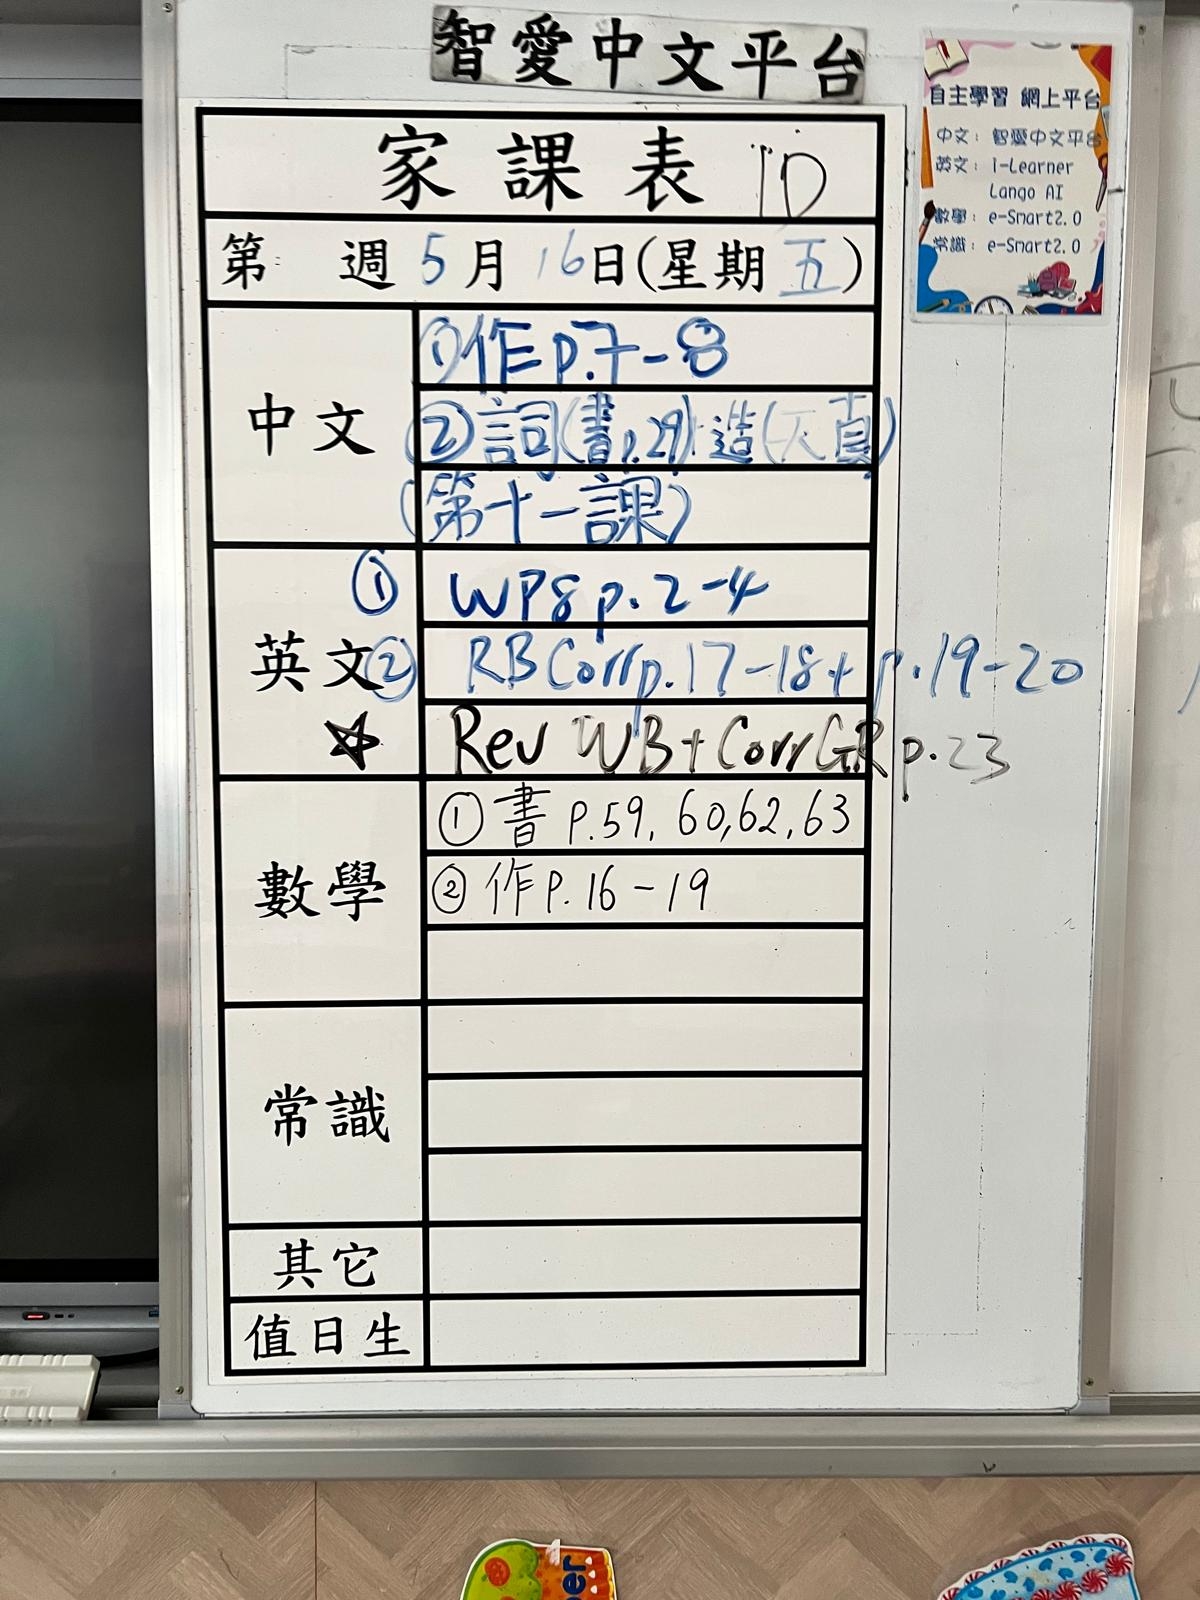 智愛中文平台
家課表 1D
第 週 5月16日(星期五)
中文
①作p.7-8
②詞(書p.29)+造(天真)
(第十一課)
英文
① WP8 p.2-4
② RB Corr p.17-18 + p.19-20
☆ Rev WB + Corr GR p.23
數學
①書 P.59, 60, 62, 63
②作P.16-19
常識
其它
值日生
自主學習 網上平台
中文：智愛中文平台
英文：i-Learner
Lango AI
數學：e-Smart2.0
常識：e-Smart2.0